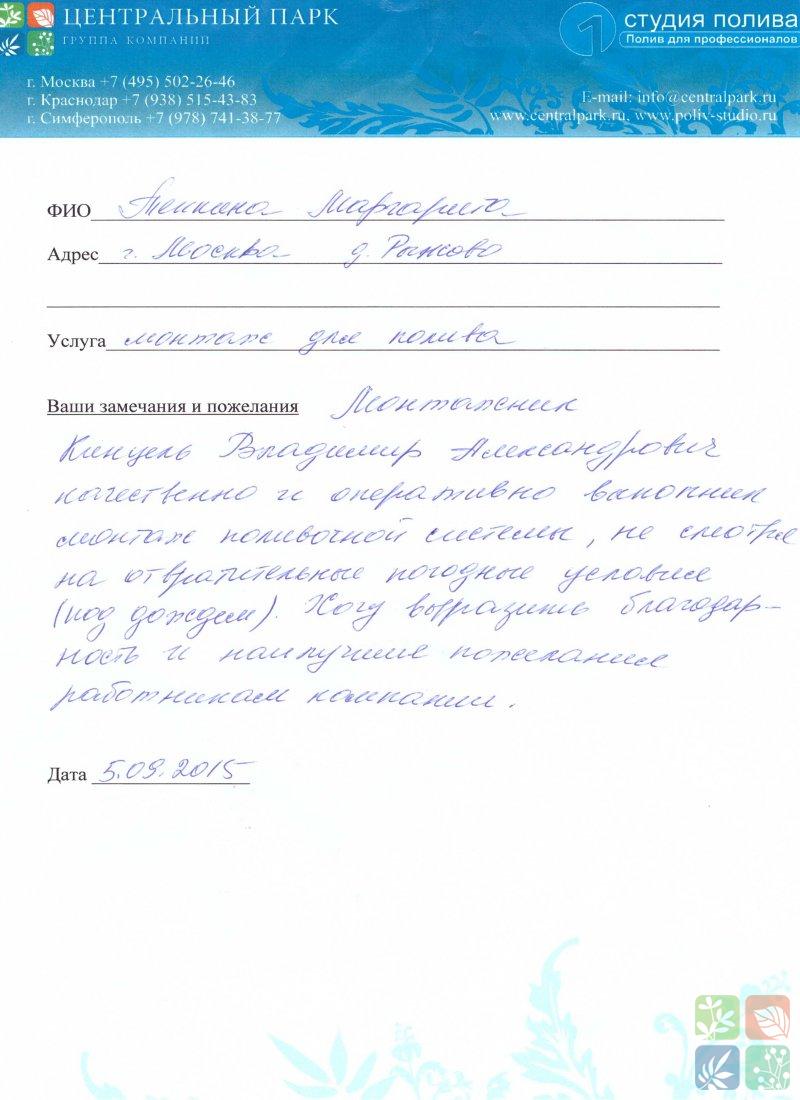 ЦЕНТРАЛЬНЫЙ ПАРК
ГРУППА КОМПАНИЙ
1 студия полива
Полив для профессионалов
г. Москва +7 (495) 502-26-46
г. Краснодар +7 (938) 515-43-83
г. Симферополь +7 (978) 741-38-77
E-mail: info@centralpark.ru
www.centralpark.ru, www.poliv-studio.ru
ФИО Маргарита
Адрес г. Москва д. Рыжово
Услуга монтаж для полива
Ваши замечания и пожелания Монтажник
Кинцель Владимир Александрович
качественно и оперативно выполнил
монтаж поливочной системы, не смотря
на отвратительные погодные условия
(под дождем). Хочу выразить благодар-
ность и наилучшие пожелания
работникам компании.
Дата 5.09.2015